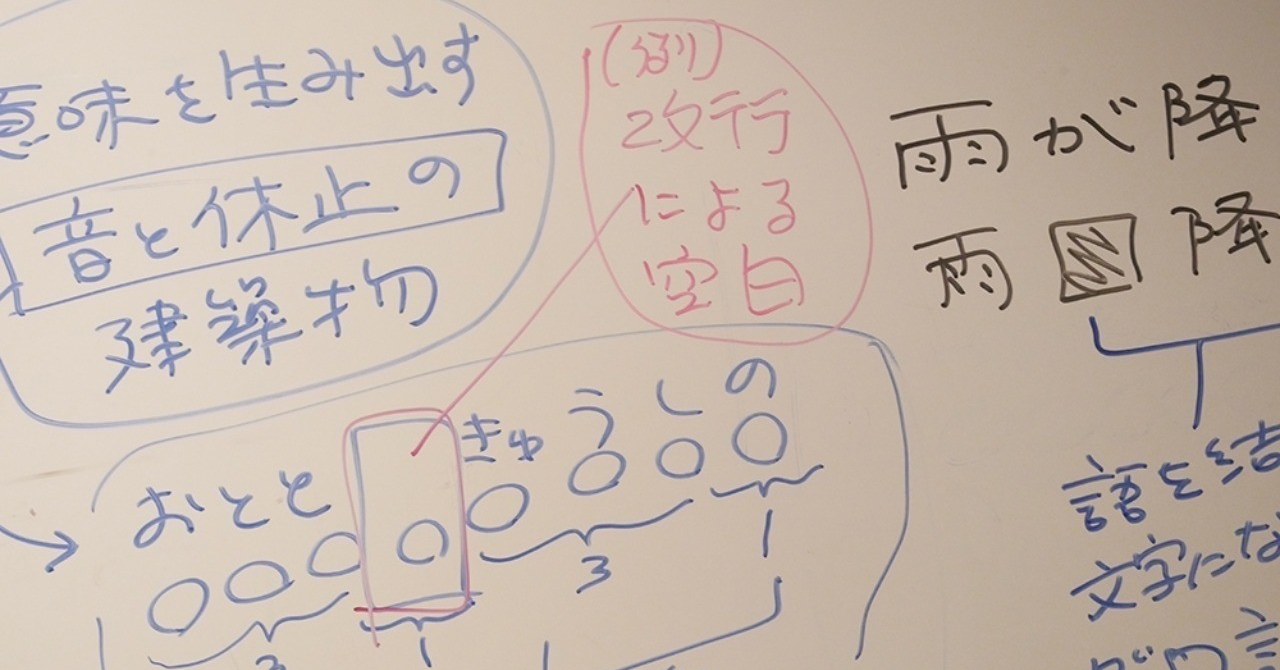 意味を生み出す
音と休止の
建築物
(例)
改行
による
空白
雨が降
雨 降
おとと きゅうしの
3 1 3 1
語を結
文字にな